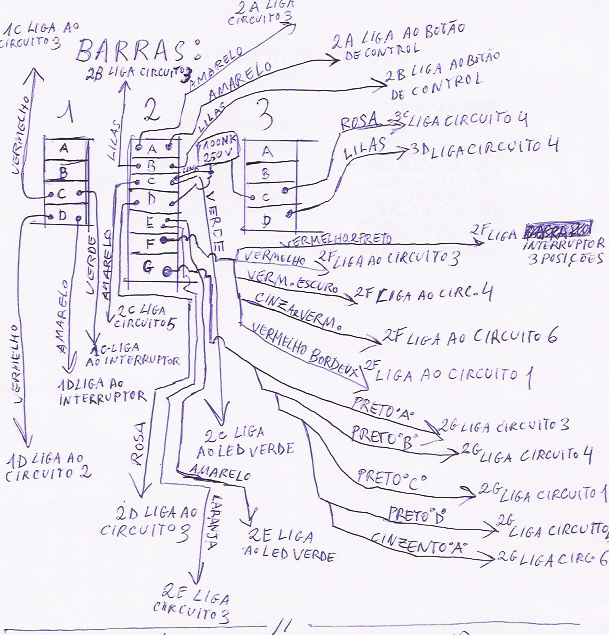 1C LIGA AO
CIRCUITO 3
2A LIGA
CIRCUITO 3
BARRAS:
2B LIGA CIRCUITO 3
AMARELO
AMARELO
LILAS
2A LIGA AO BOTÃO
DE CONTROL
2B LIGA AO BOTÃO
DE CONTROL
VERMELHO
LILAS
1
2
3
A
B
C
D
A
B
C
D
E
F
G
100NK
250V
A
B
C
D
ROSA
3C LIGA CIRCUITO 4
LILAS
3D LIGA CIRCUITO 4
VERDE
AMARELO
VERDE
AMARELO
VERMELHO
VERMELHO E PRETO
2F LIGA
INTERRUPTOR
3 POSIÇÕES
VERMELHO
2F LIGA AO CIRCUITO 3
VERM. ESCURO
2F LIGA AO CIRC. 4
CINZA E VERM.
2F LIGA AO CIRCUITO 6
VERMELHO BORDEUX
2F
LIGA AO CIRCUITO 1
2C LIGA
CIRCUITO 5
1C LIGA
AO INTERRUPTOR
1D LIGA AO
INTERRUPTOR
1D LIGA AO
CIRCUITO 2
PRETO "A"
2G LIGA CIRCUITO 3
PRETO "B"
2G LIGA CIRCUITO 4
PRETO "C"
2G LIGA CIRCUITO 1
PRETO "D"
2G
LIGA CIRCUITO
CINZENTO "A"
2G LIGA CIRC. 6
ROSA
2C LIGA
AO LED VERDE
AMARELO
LARANJA
2D LIGA AO
CIRCUITO 3
2E LIGA
AO LED VERDE
2E LIGA
CIRCUITO 3